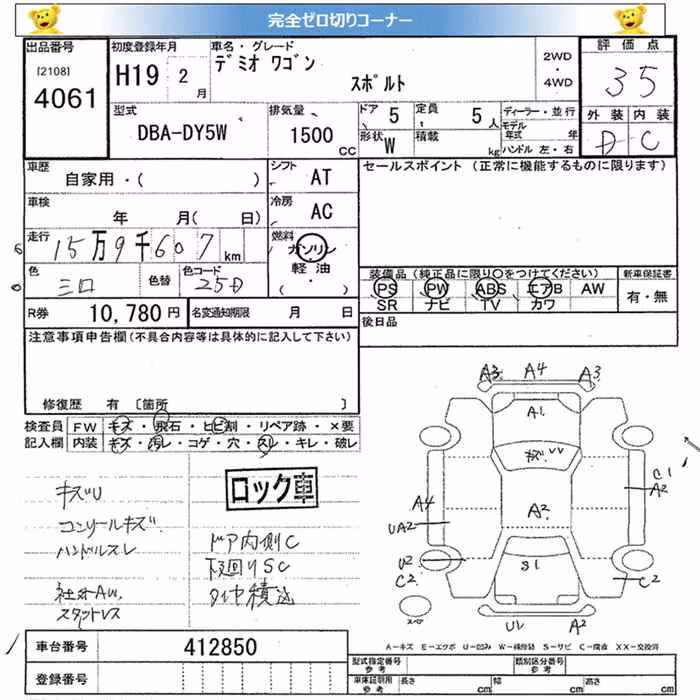 完全ゼロ切りコーナー
出品番号
[2108]
4061
初度登録年月
H19 2月
車名・グレード
デミオ ワゴン
スポルト
2WD
・
4WD
評価点
35
外装 内装
D C
型式
DBA-DY5W
排気量
1500
CC
ドア 5
形状 W
定員 5人
積載 kg
ディーラー・並行
モデル年式 年
ハンドル 左・右
車歴
自家用・( )
シフト
AT
セールスポイント (正常に機能するものに限ります)
車検
年 月( 日)
冷房
AC
走行
15万9千607km
燃料
ガソリン
軽油
( ・ )
色
シロ
色替
色コード
25D
装備品(純正品に限り○をつけてください)
PS PW ABS エアB AW
SR ナビ TV カワ
新車保証書
有・無
R券 10,780円
名変通知期限 月 日
後日品
注意事項申告欄(不具合内容等は具体的に記入して下さい)
修復歴 有 〔箇所 〕
検査員
記入欄
FW キズ・飛石・ヒビ割・リペア跡・×要
内装 キズ・汚レ・コゲ・穴・スレ・キレ・破レ
キズU
コンソールキズ
ハンドルスレ
社外AW
スタットレス
ロック車
ドア内側C
下廻りSC
タイヤ積込
A3 A4 A3
A1
キズ VV
A2
S1
A4
UA2
U2
C2
C1
A2
C2
スペア
U1 A2
A-キズ E-エクボ U-凹み W-補修跡 S-サビ C-腐食 XX-交換済
車台番号 412850
登録番号
型式指定番号
参考
類別区分番号
参考
車庫証明用
参考
長さ cm
幅 cm
高さ cm